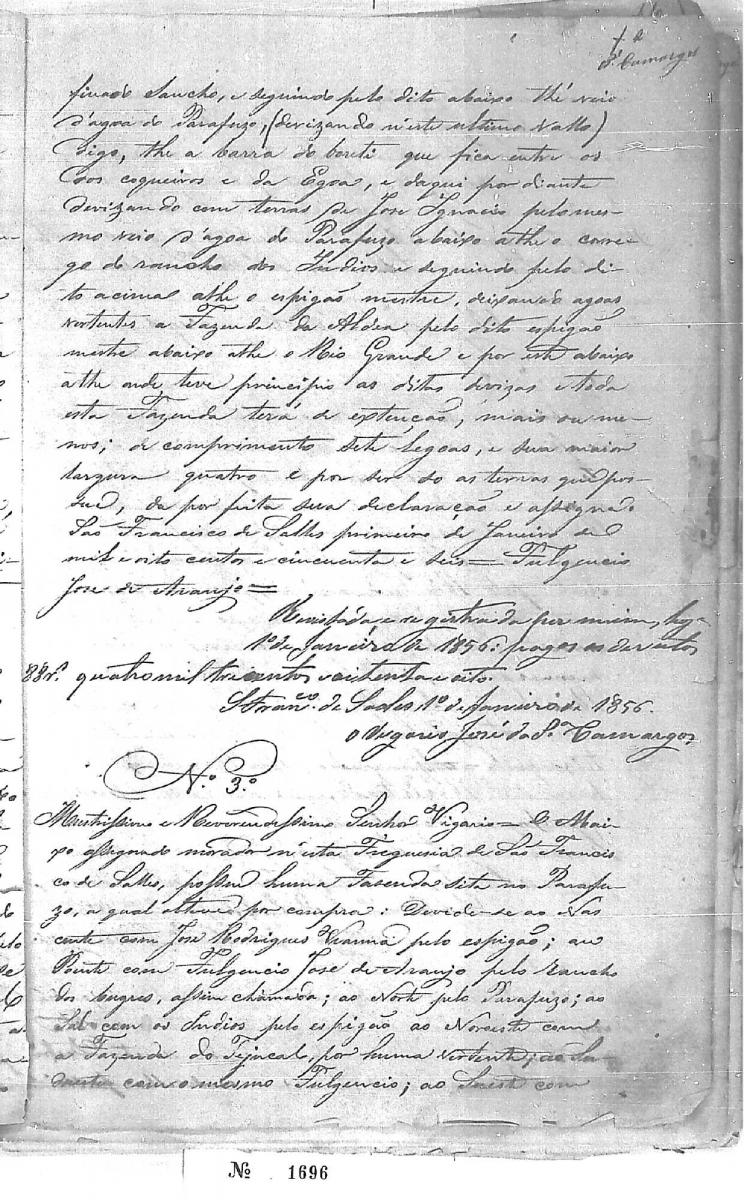 finado Sancho, e seguindo pelo dito abaixo thé veio
d'agoa do Parafuzo, (devizando n'este ultimo Vallo)
digo, the a barra do boriti que fica entre os
dos coqueiros e da Egoa, e daqui por diante
devizando com terras de Jose Ignacio pelo mes-
mo veio d'agoa do Parafuzo abaixo athe o corre-
go do rancho dos Indios e seguindo pelo di-
to acima athe o espigão mestre, deixando agoas
vertentes a Fazenda da Aldêa pelo dito espigão
mestre abaixo athe o Rio Grande e por este abaixo
athe onde teve principio as ditas devizas e toda
esta Fazenda terá de extenção, mais ou me-
nos; de comprimento sete legoas, e sua maior
largura quatro e por ser so as terras que pos-
sue, da por feita sua declaração e assigna
São Francisco de Salles primeiro de Janeiro de
mil e oito centos e cincuenta e seis = Fulgencio
Jose de Araujo =
Revistada e registrada por mim, hoje
1º de Janeiro de 1856: pagou os direitos
88rs. quatro mil trecentos e oitenta e oito.
S. Franco. de Salles 1º de Janeiro de 1856.
O Vegario José da Sa. Camargos
Nº 3º
Illustrissimo e Reverendissimo Senhor Vigario = O Abai-
xo assignado morador n'esta Freguesia de São Francis
co de Salles, possue huma Fasenda sita no Parafu-
zo, a qual obteve por compra: Devide-se ao Nas
cente com Jose Rodrigues Vianna pelo espigão; au
Poente com Fulgencio Jose de Araujo pelo rancho
dos bugres, assim chamada; ao Norte pelo Parafuzo; ao
Sul com os Indios pelo espigão ao Noroeste com
a Fazenda do Tejucal, por huma vertente; ao Su-
dueste com o mesmo Fulgencio; ao Sueste com
Nº 1696